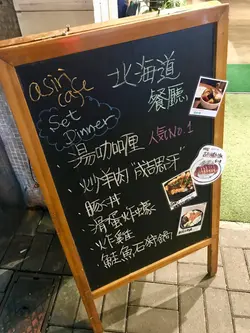 asin cafe
北海道
餐廳
Set
Dinner
湯咖喱 人気No.1
· 炒羊肉"成吉思汗"
· 豚丼
· 滑蛋炸蠔
· 炸雞
· 鮭魚石狩鍋